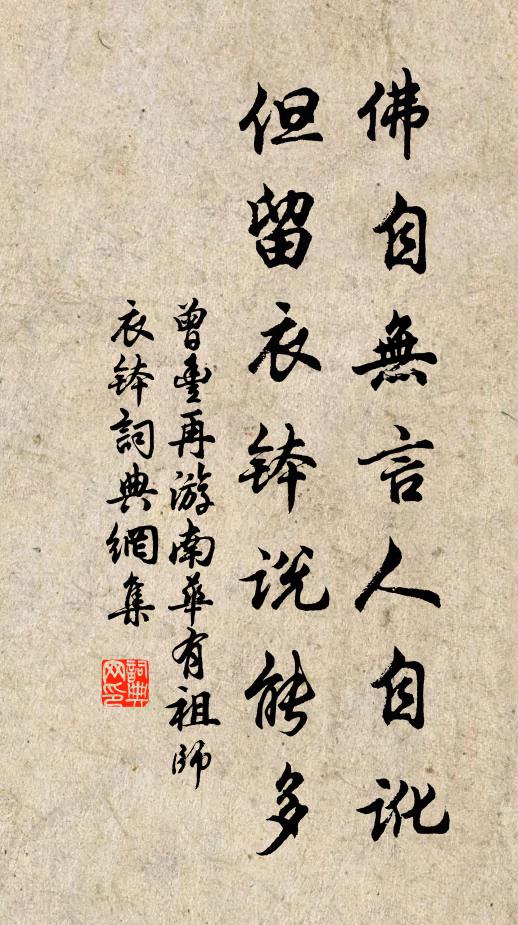 佛自無言人自訛
但留衣鉢说能多
曾豊再游南華有祖師
衣鉢詞典網集
詞典
网印